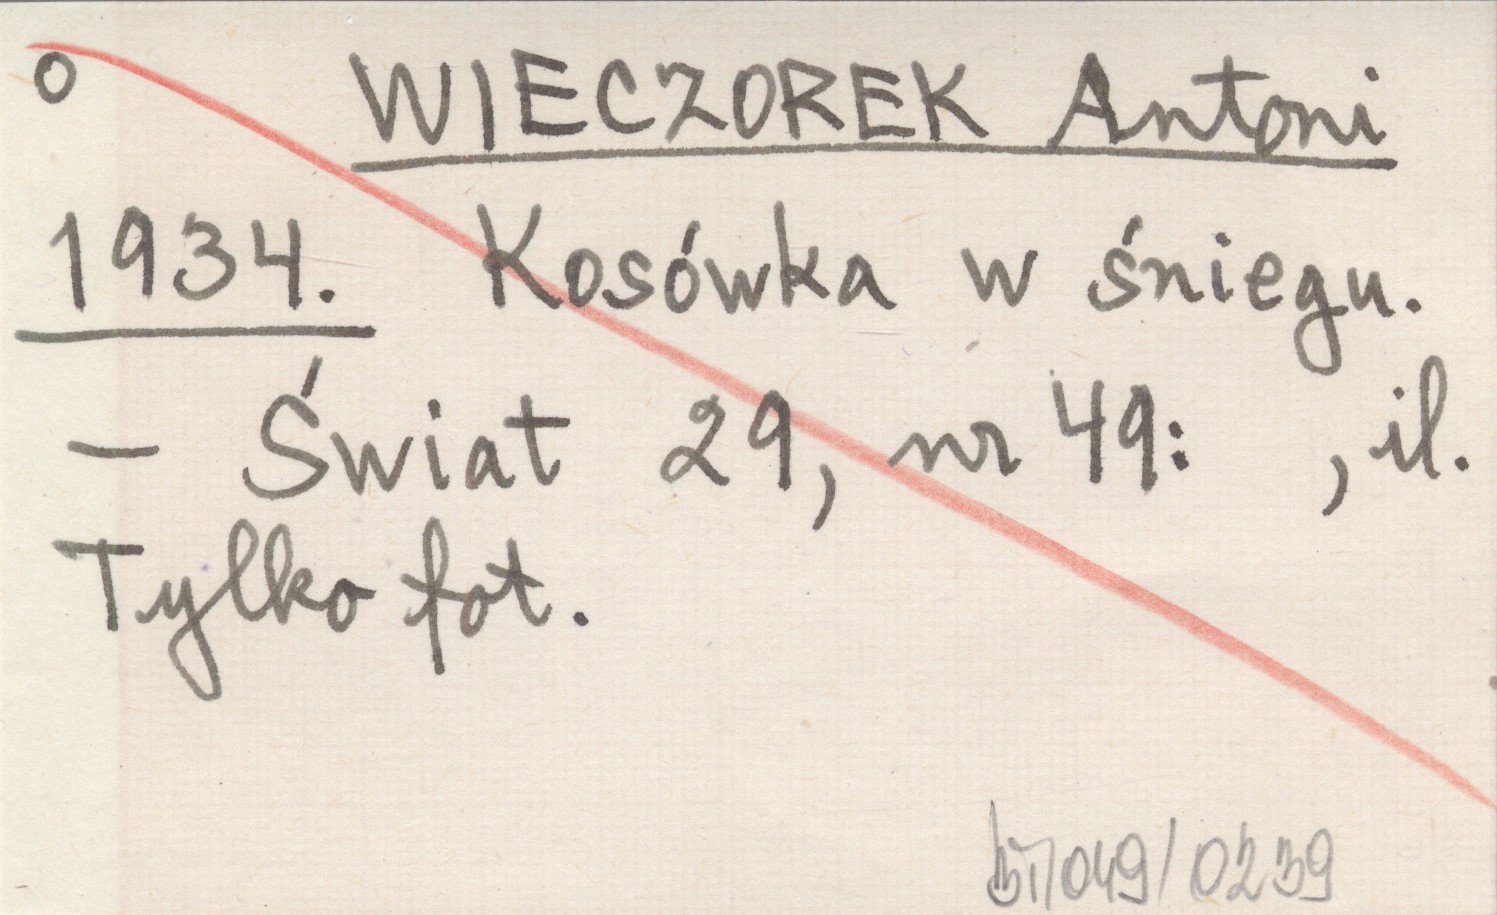 o WIECZOREK Antoni
1934. Kosówka w śniegu.
— Świat 29, nr 49: , il.
Tylko fot.
049/0239